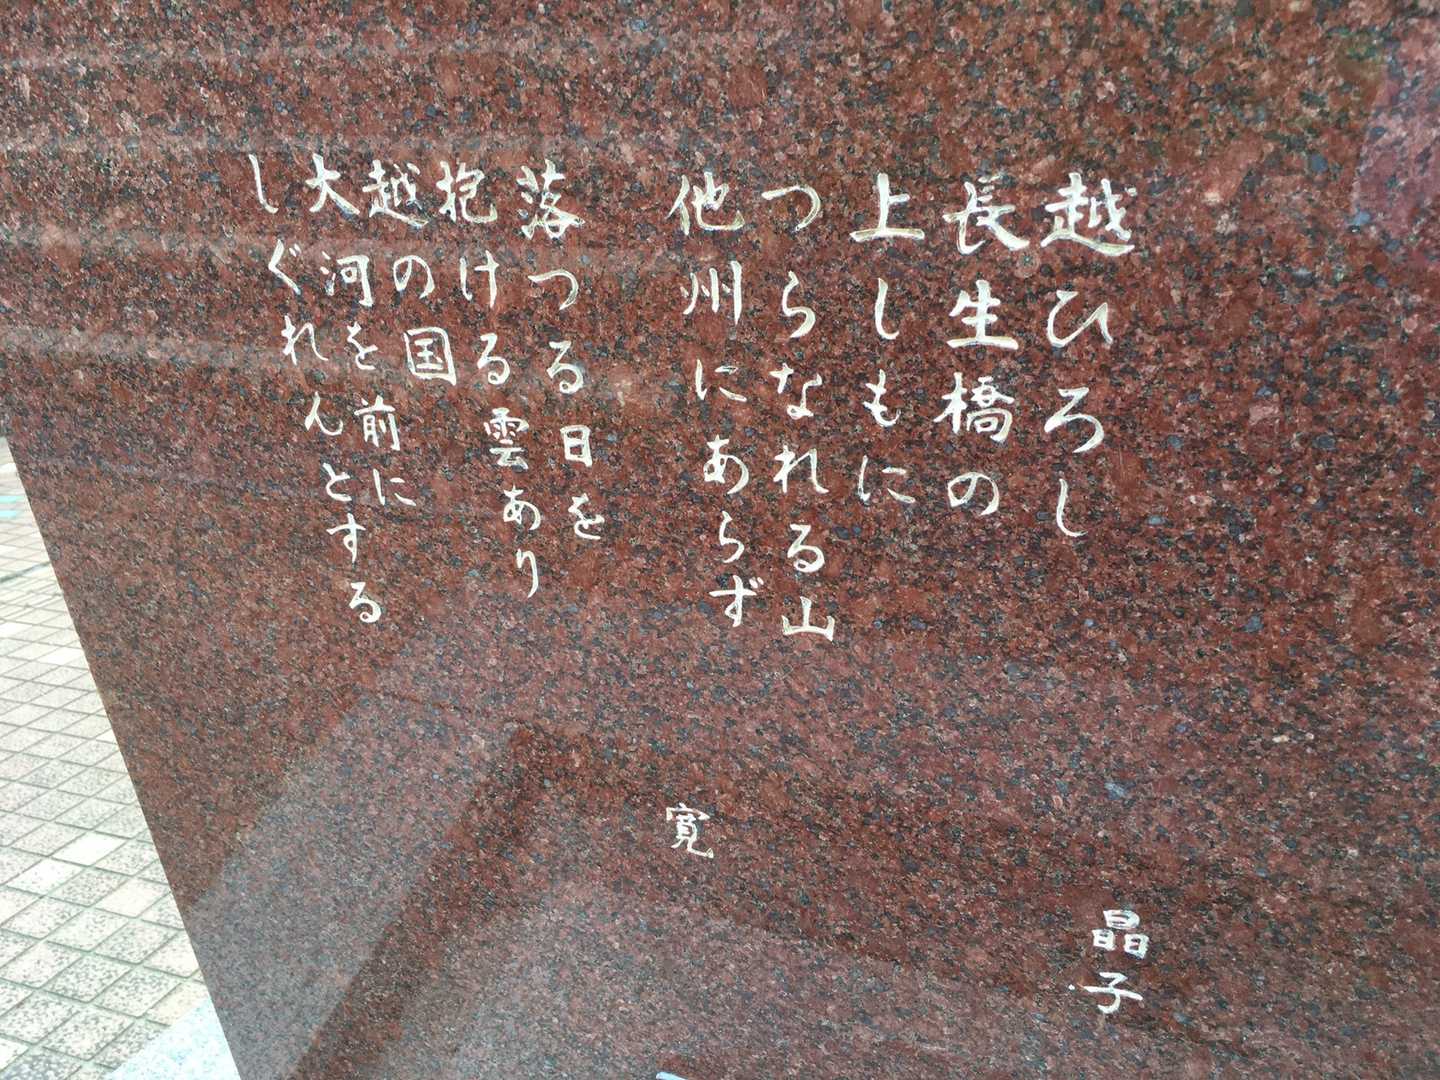 越ひろし
長生橋の
上しもに
つらなれる山
他州にあらず
晶子
落つる日を
抱ける雲あり
越の国
大河を前に
しぐれんとする
寛